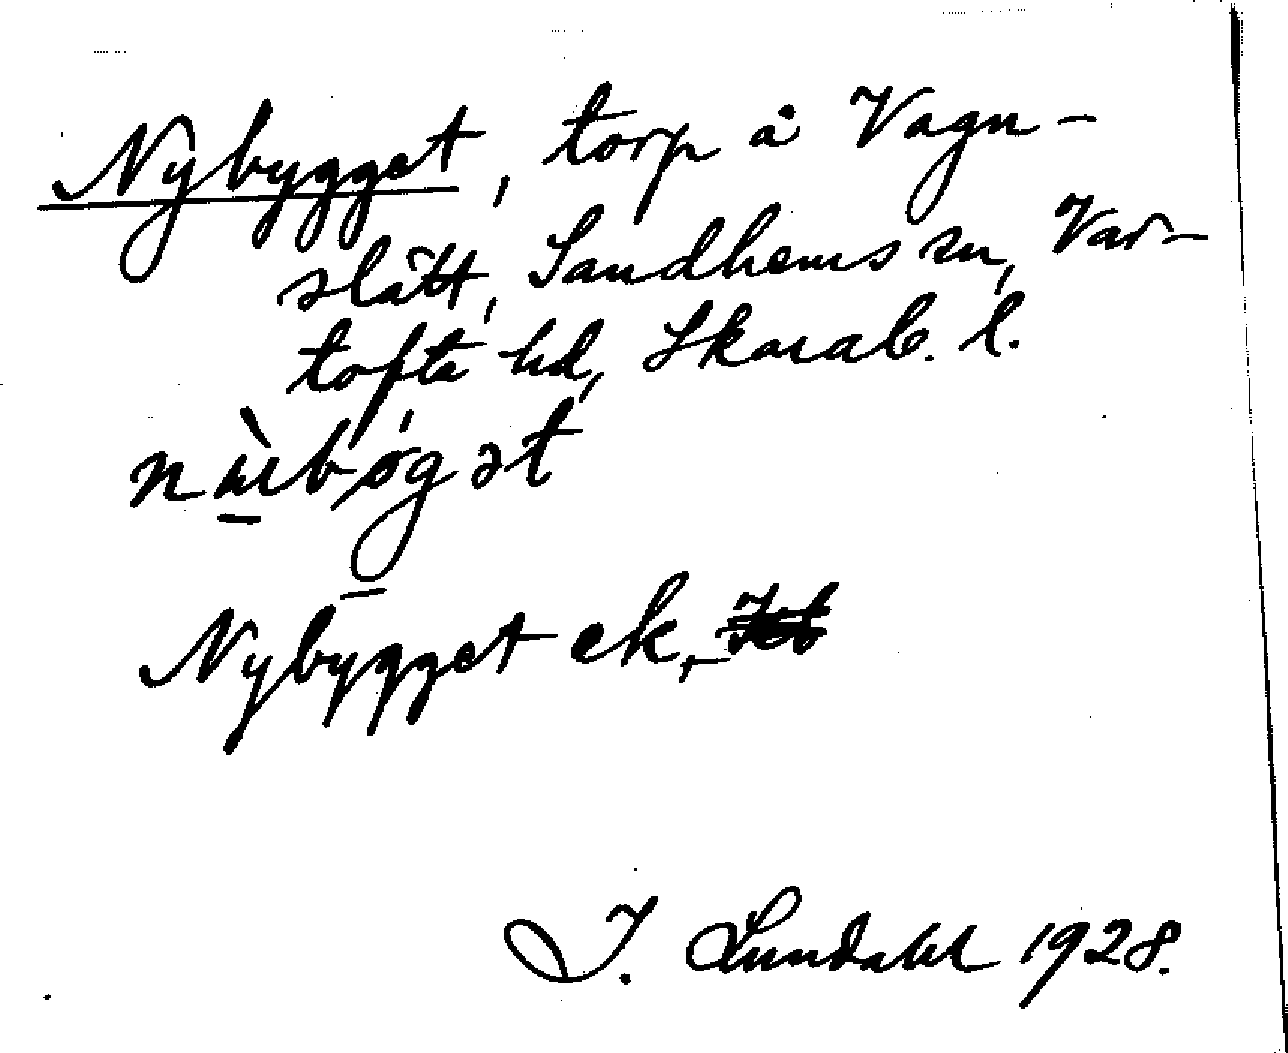 Nybygget, torp å Vagn-
slätt, Sandhems sn, Var-
tofta hd, Skarab. l.
Nybygget ek,
I. Lundahl 1928.